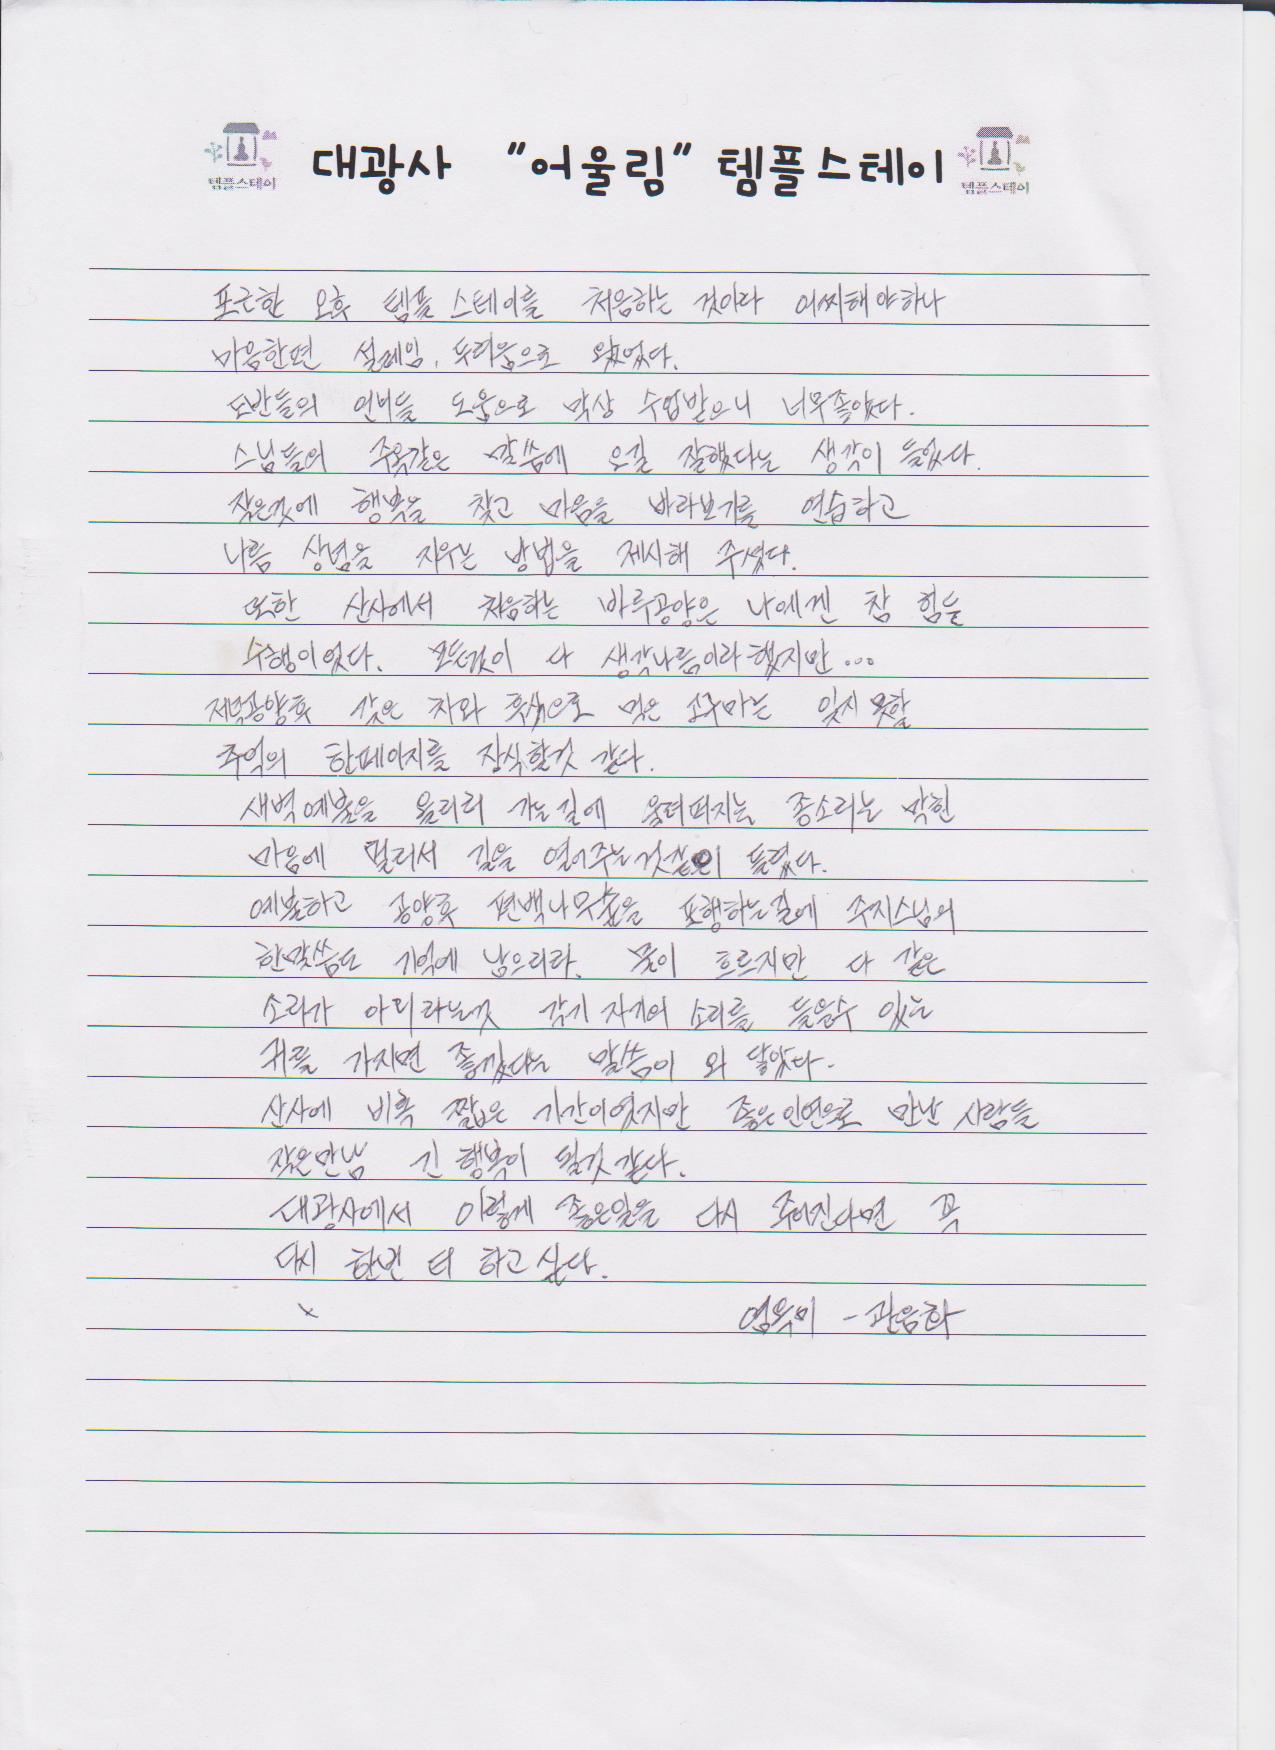 템플스테이
대광사 "어울림" 템플스테이
템플스테이
포근한 오후 템플스테이를 처음하는 것이라 어찌해야하나
마음한편 설레임, 두려움으로 왔었다.
도반들의 언니들 도움으로 막상 수업받으니 너무좋았다.
스님들의 주옥같은 말씀에 오길 잘했다는 생각이 들었다.
작은것에 행복을 찾고 마음을 바라보기를 연습하고
나름 상념을 지우는 방법을 제시해 주셨다.
또한 산사에서 처음하는 바루공양은 나에겐 참 힘들
수행이었다. 모든것이 다 생각나름이라 했지만...
저녁공양후 갖은 차와 후식으로 먹은 고구마는 잊지 못할
추억의 한페이지를 장식할것 같다.
새벽예불을 올리러 가는길에 울려퍼지는 종소리는 막힌
마음에 멀리서 길을 열어주는것같이 들렸다.
예불하고 공양후 편백나무숲을 포행하는길에 주지스님의
한말씀도 기억에 남으리라. 물이 흐르지만 다 같은
소리가 아니라는것 각기 자기의 소리를 들을수 있는
귀를 가지면 좋겠다는 말씀이 와 닿았다.
산사에 비록 짧은 기간이었지만 좋은인연으로 만난 사람들
작은만남 긴 행복이 될것 같다.
대광사에서 이렇게 좋은일을 다시 주어진다면 꼭
다시 한번 더 하고 싶다.
염옥미 - 관음화